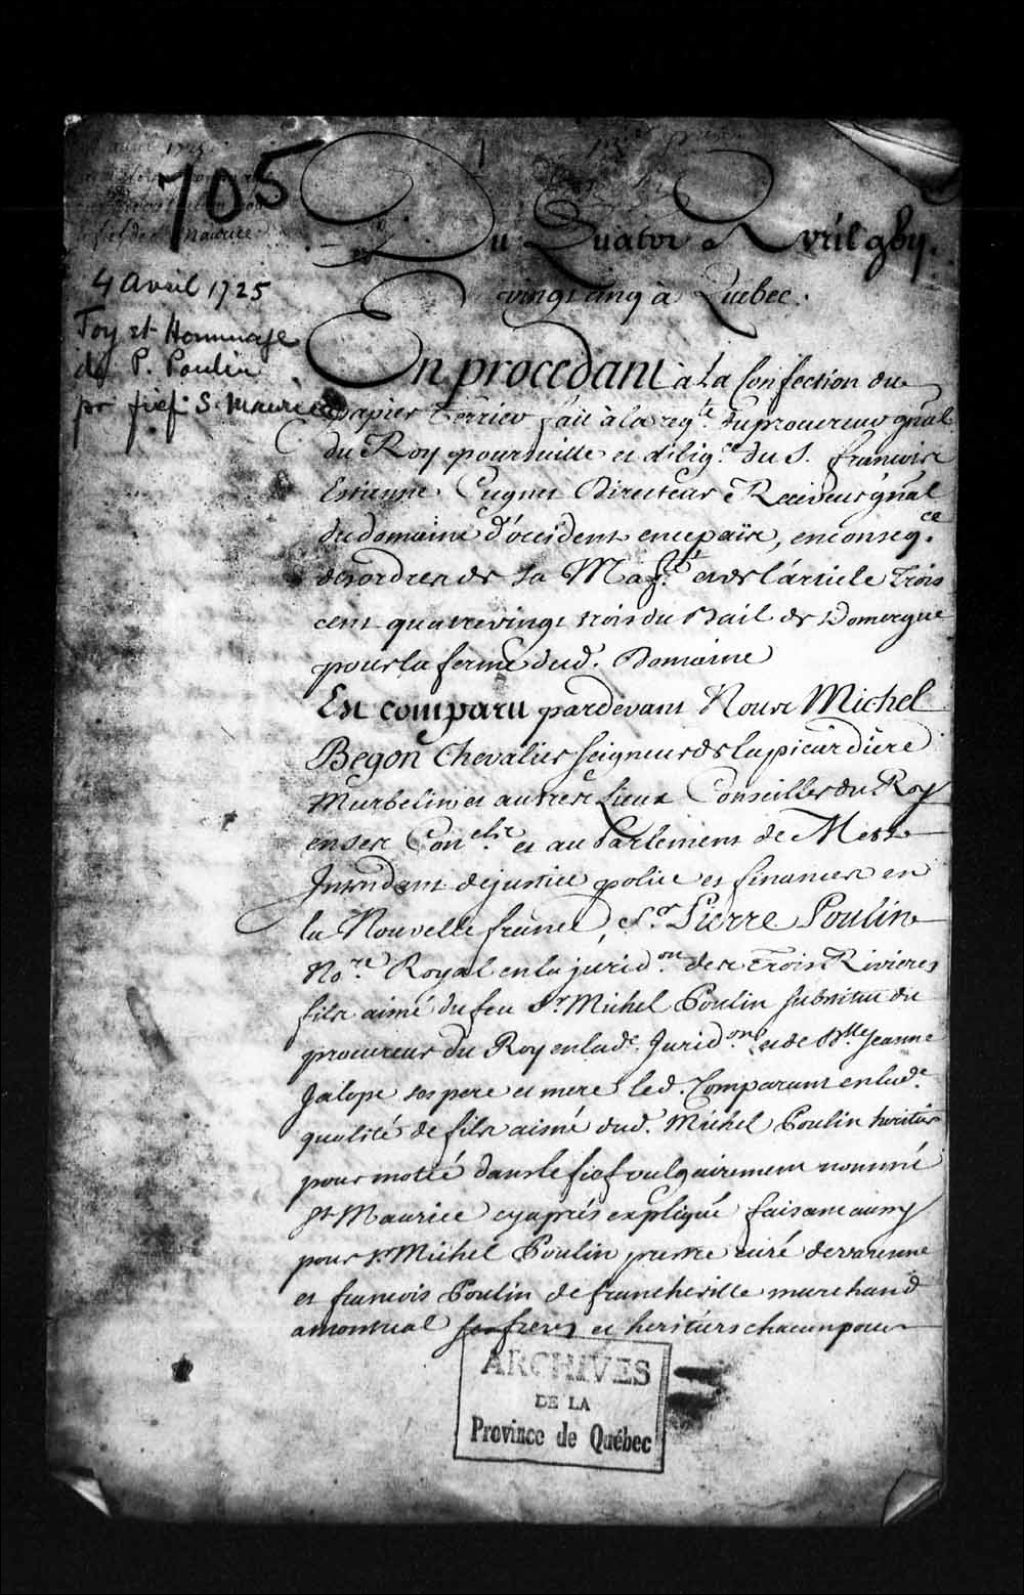 705
4 Avril 1725
Foy et Hommage
de P. Poulin
pr fief S. Maurice
Du Quatre Avril gby.
vingt cinq à Quebec.
En procedant à La Confection du
papier Terrier fait à la reqte. du procureur gnal
du Roy poursuitte et diligce. du S. francois
Estienne Cugnet Directeur & Receveur gnal
du domaine d'occident en ce païs, en conseqce.
des ordres de Sa Majté. et de l'article Trois
cent quatrevingt trois du Bail de Domergue
pour la ferme dud. Domaine
Est comparu pardevant Nous Michel
Begon Chevalier Seigneur de la picardiere
Murbelin et autres Lieux Conseiller du Roy
en ses Conels. et au Parlement de Metz
Intendant de justice police et finances en
la Nouvelle france, Sr. Pierre Poulin
Nore. Royal en la juridon. des Trois Rivieres
fils aisné du feu Sr. Michel Poulin substitut du
procureur du Roy en lade. Juridon. et de Dlle. Jeanne
Jalope ses pere et mere led. Comparant en lade.
qualité de fils aisné dud. Michel Poulin heritier
pour motié dans le fief vulgairement nommé
St. Maurice cy après expliqué faisant aussy
pour Sr. Michel Poulin prestre curé de varenne
et francois Poulin de francheville marchand
a montreal ses freres et heritiers chacun pour
ARCHIVES
DE LA
Province de Québec